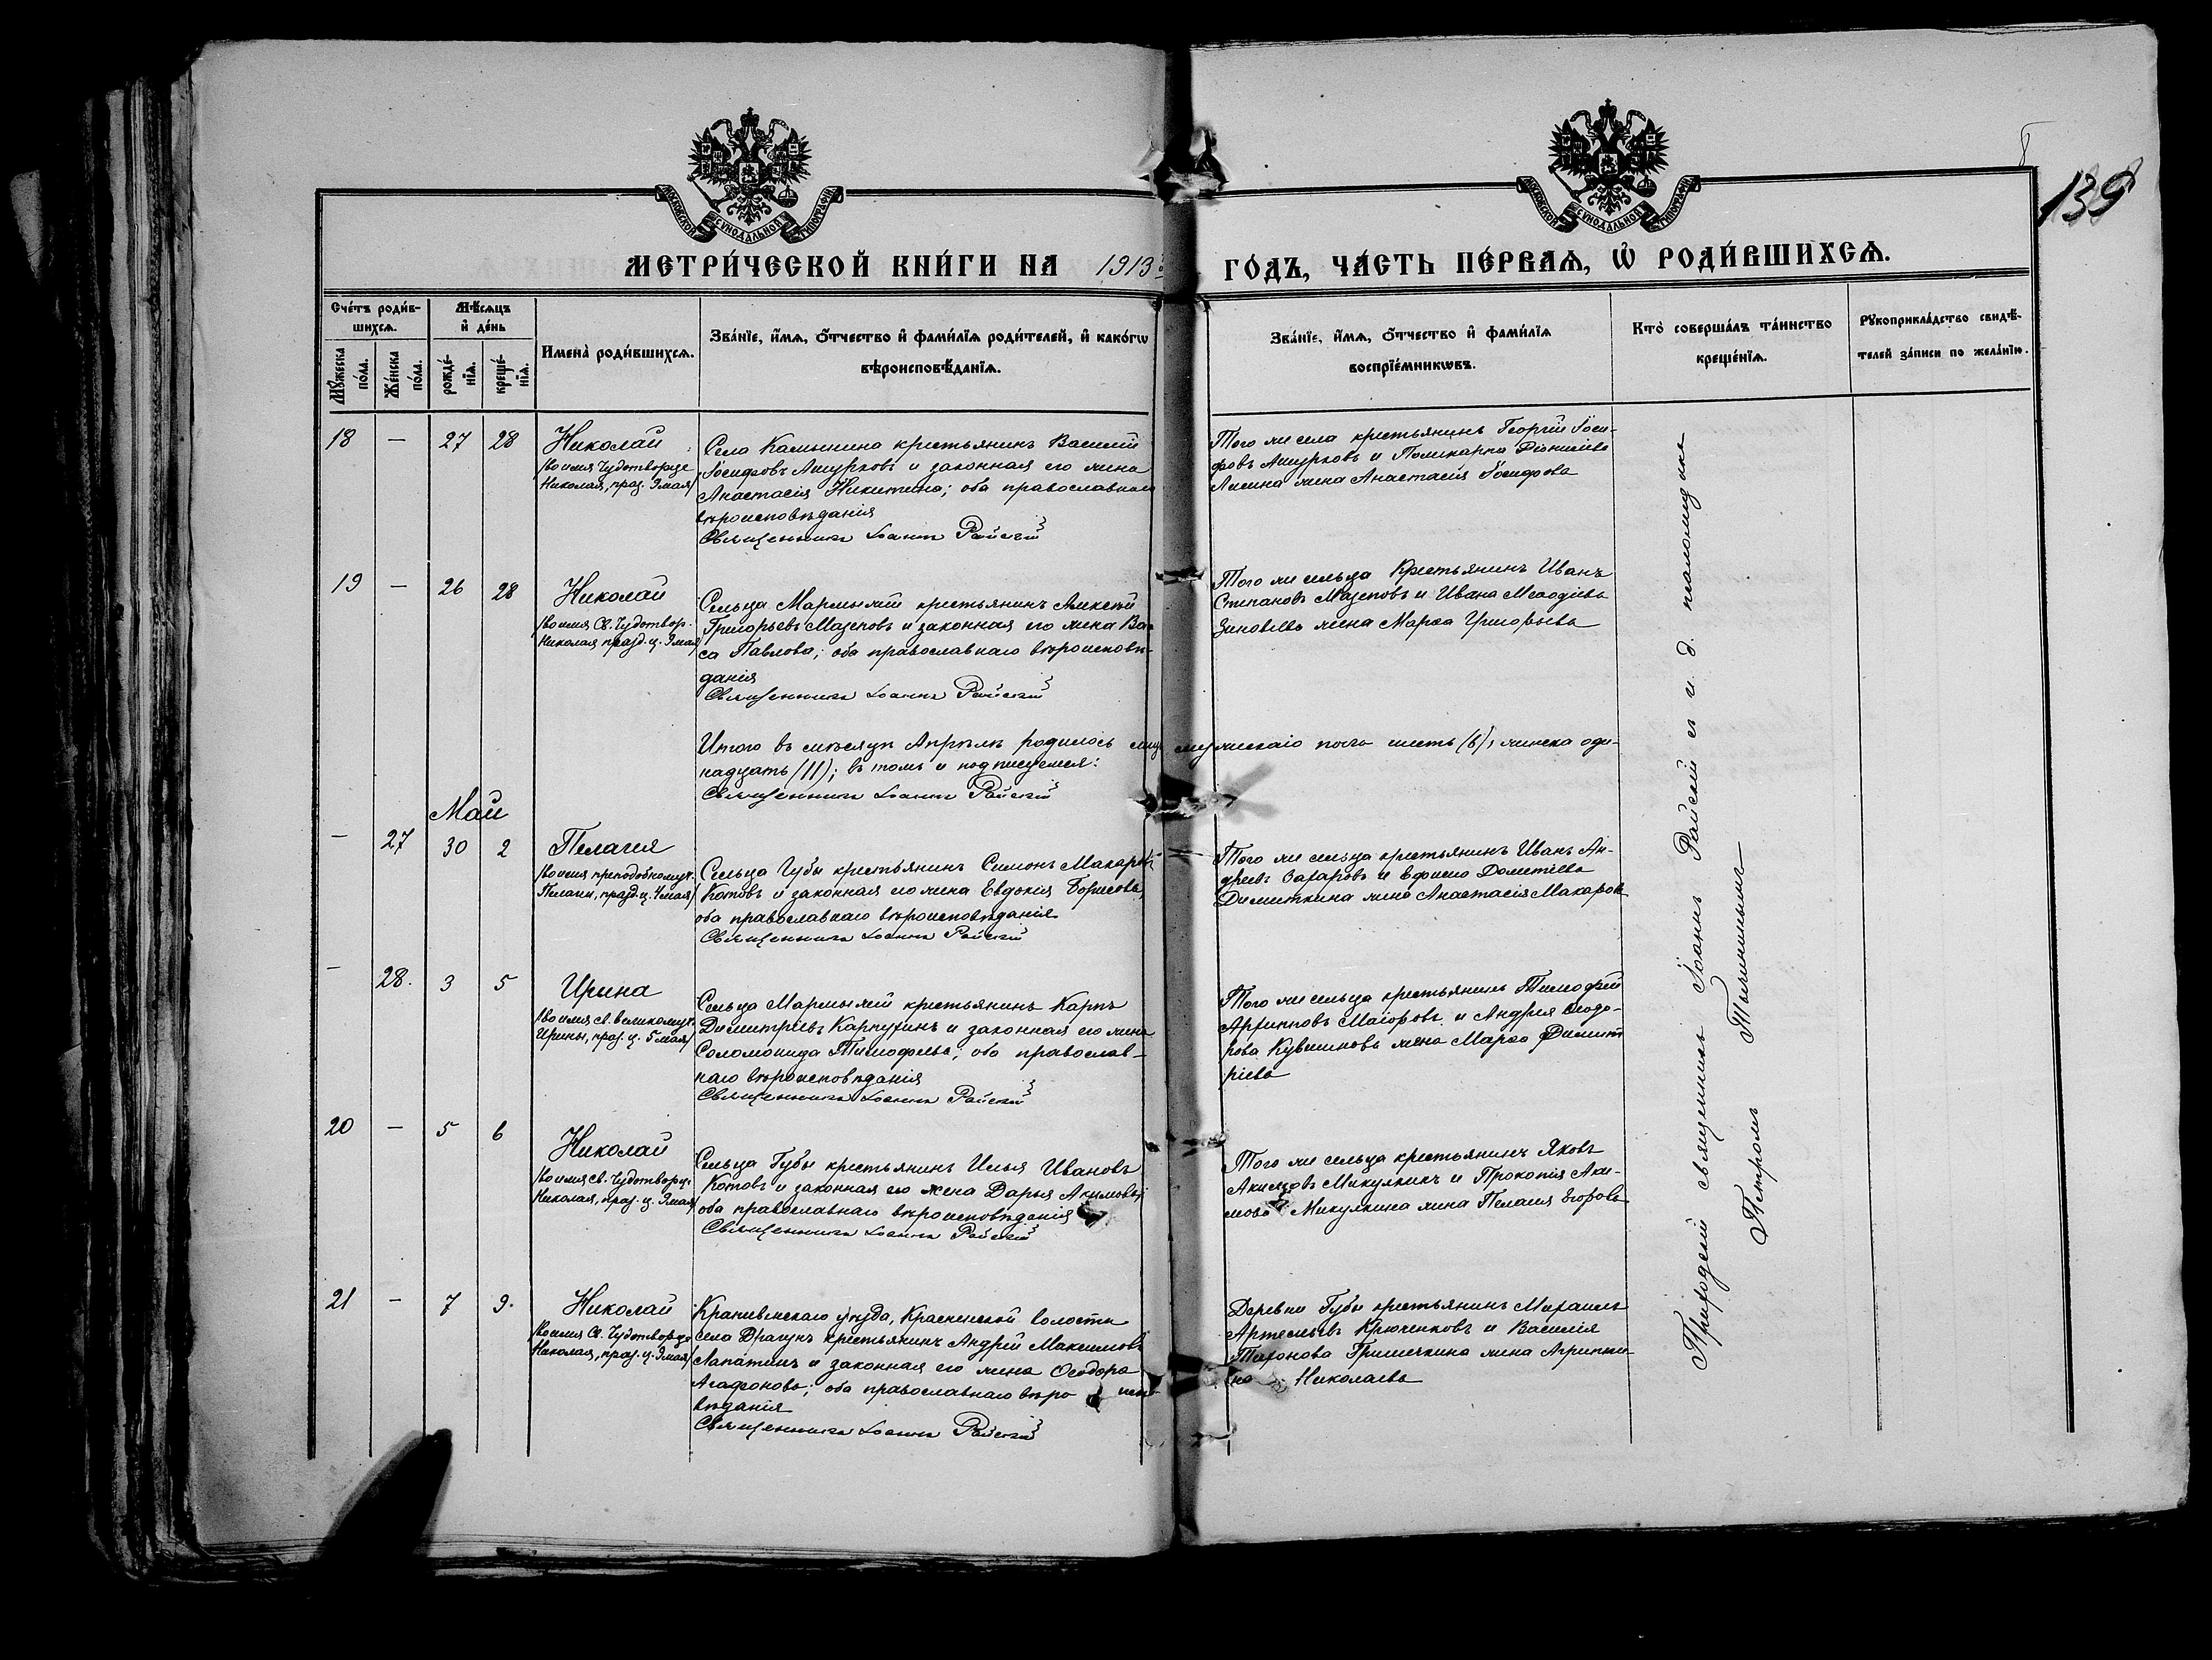 139
МОСКОВСКОЙ СУНОДАЛЬНОЙ ТИПОГРАФІИ
МОСКОВСКОЙ СУНОДАЛЬНОЙ ТИПОГРАФІИ
МЕТРИ́ЧЕСКОЙ КНИ́ГИ НА 1913 ГО́ДЪ, ЧА́СТЬ ПЕ́РВАѦ, Ѡ҆ РОДИ́ВШИХСѦ.
Сче́тъ роди́в-
шихсѧ.
Мꙋ́жеска по́ла.
Же́нска по́ла.
Мѣ́сѧцъ
и҆ де́нь
рожде́-
нїѧ.
креще́-
нїѧ.
Имена̀ роди́вшихсѧ.
Зва́нїе, и҆́мѧ, ѻ҆́тчество и҆ фами́лїѧ роди́телей, и҆ како́гѡ
вѣроисповѣ́данїѧ.
Зва́нїе, и҆́мѧ, ѻ҆́тчество и҆ фами́лїѧ
воспрїе́мникѡвъ.
Кто̀ соверша́лъ та́инство
креще́нїѧ.
Рꙋкоприкла́дство свидѣ́-
телей за́писи по жела́нїю.
18 — 27 28
Николай
/во имя Чудотворце
Николая, праз. 9 мая/
Села Камынина крестьянинъ Василій
Іосифовъ Ашурковъ и законная его жена
Анастасія Никитина; оба православнаго
вѣроисповѣданія
Священникъ Іоаннъ Райскій
Того же села крестьянинъ Георгій Іоси-
фовъ Ашурковъ и Поликарпа
жена Анастасія Іосифова
19 — 26 28
Николай
/во имя Св. Чудотвор.
Николая празд. ц. 9 мая/
Сельца Мармыжи крестьянинъ Алексѣй
Григорьевъ Мазеповъ и законная его жена Ва-
са Павлова; оба православнаго вѣроисповѣ-
данія
Священникъ Іоаннъ Райскій
Того же сельца Крестьянинъ Иванъ
Степановъ Мазеповъ и Ивана Меѳодіева
жена Марѳа Григорьева
Итого въ мѣсяцѣ Апрѣлѣ родилось мужескаго пола шесть (6), женска оди-
надцать (11); въ томъ и подписуемся:
Священникъ Іоаннъ Райскій
Май
— 27 30 2
Пелагия
/во имя преподобномуч.
Пелагіи, празд. ц. 4 мая/
Сельца Губы крестьянинъ Симонъ Макаровъ
Котовъ и законная его жена Евдокія Борисова,
оба православнаго вѣроисповѣданія
Священникъ Іоаннъ Райскій
Того же сельца крестьянинъ Иванъ Ан-
дреевъ Захаровъ и Ефима
Димиткина жена Анастасія Макарова
— 28. 3 5
Ирина
/во имя св. великомуч.
Ирины, праз. ц. 5 мая/
Сельца Мармыжи крестьянинъ Карпъ
Димитріевъ Карпухинъ и законная его жена
Соломонида Тимофеева; оба православ-
наго вѣроисповѣданія
Священникъ Іоаннъ Райскій
Того же сельца крестьянинъ Тимофей
Архиповъ Маіоровъ и Андрея Ѳеодо-
рова Кувшинова жена Марѳа Димит
ріева
20 — 5 6
Николай
/во имя св. Чудотворца
Николая, праз. ц. 9 мая/
Сельца Губы крестьянинъ Илья Ивановъ
Котовъ и законная его жена Дарья Акимова;
оба православнаго вѣроисповѣданія
Священникъ Іоаннъ Райскій
Того же сельца крестьянинъ Яковъ
Акимовъ Микулкинъ и Прокопія Аки-
мова Микулкина жена Пелагия Егорова
21 — 7 9.
Николай
/во имя Св. Чудотворца
Николая, праз. ц. 9 мая/
Крапивенскаго уѣзда, Красненской волости
села Драгунъ крестьянинъ Андрей Максимовъ
Лапатинъ и законная его жена Ѳеодора
Агафонова; оба православнаго вѣроиспо-
вѣданія
Священникъ Іоаннъ Райскій
Деревни Губы крестьянинъ Михаилъ
Артемьевъ Крюченковъ и Василія
Тихонова Гришечкина жена Агриппи-
на Николаева
Приходскій священникъ Іоаннъ Райскій съ и. д. псаломщика
Петромъ